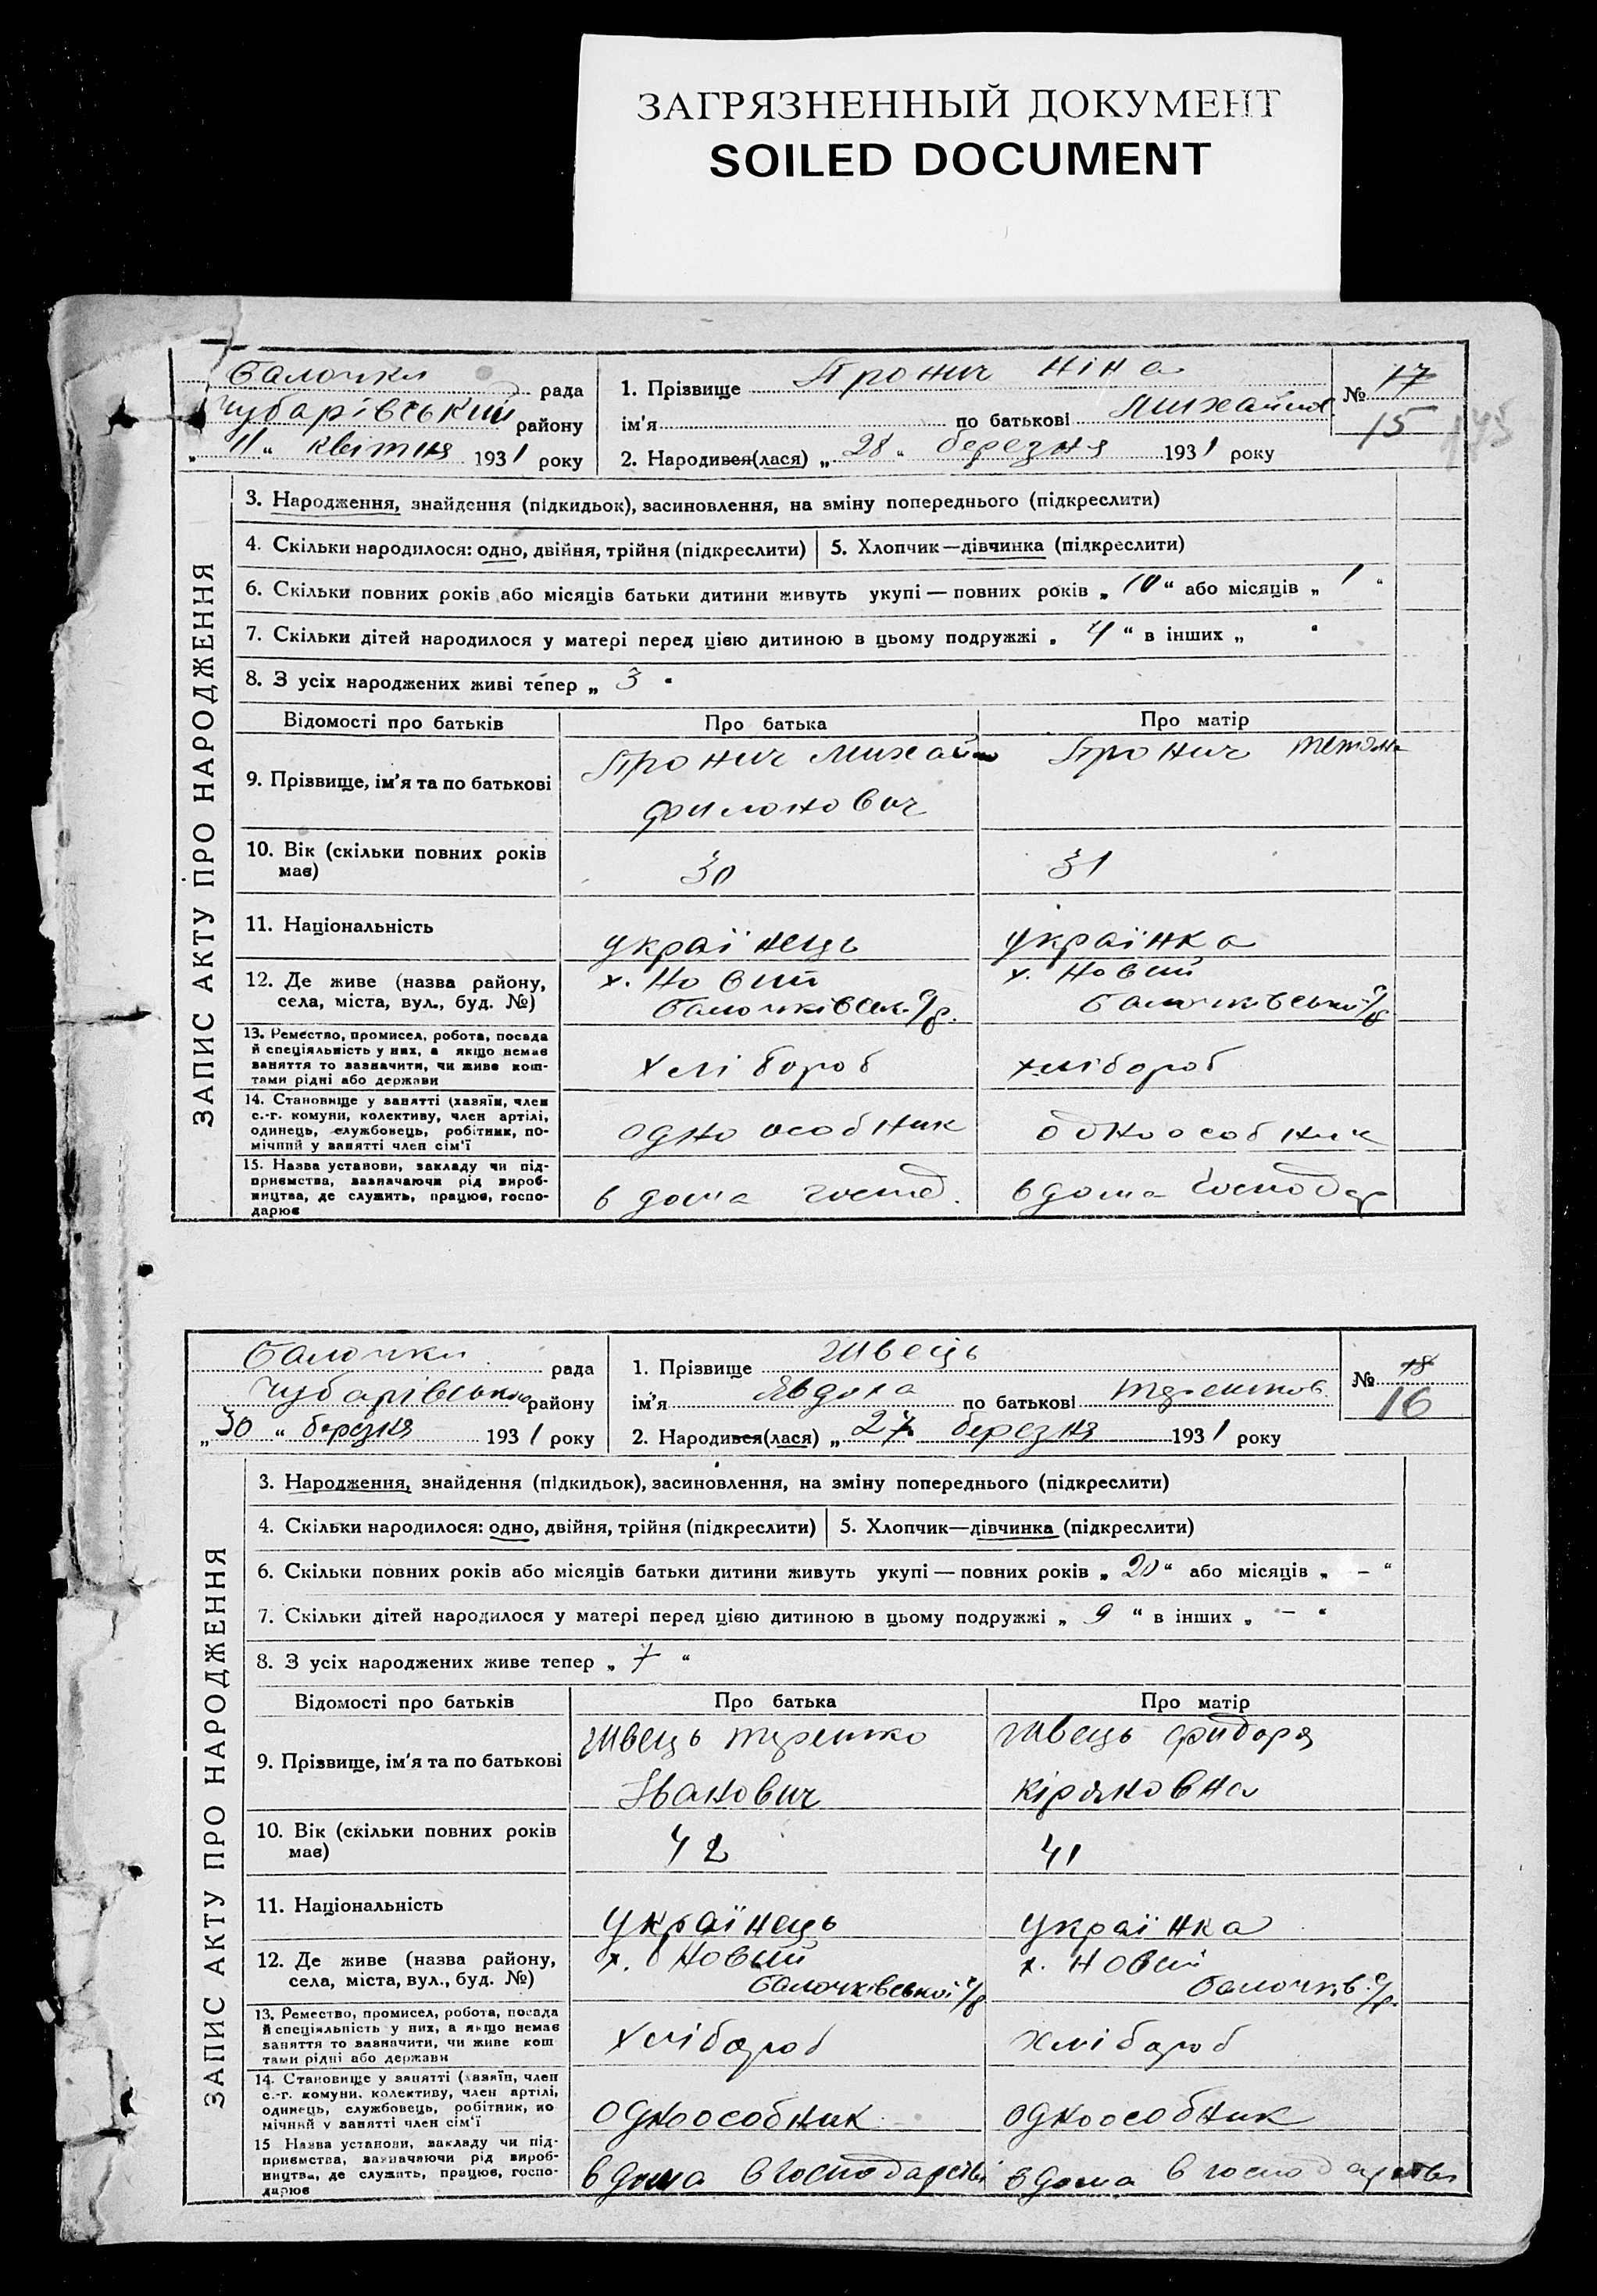 ЗАГРЯЗНЕННЫЙ ДОКУМЕНТ
SOILED DOCUMENT
Балочки рада
Чубарівський району
„ 11 “ квітня 1931 року
1. Прізвище Пронич Ніна
ім'я по батькові Михайлов
2. Народився(лася) „ 28 “ березня 1931 року
№ 17
15
ЗАПИС АКТУ ПРО НАРОДЖЕННЯ
3. Народження, знайдення (підкидьок), засиновлення, на зміну попереднього (підкреслити)
4. Скільки народилося: одно, двійня, трійня (підкреслити) 5. Хлопчик—дівчинка (підкреслити)
6. Скільки повних років або місяців батьки дитини живуть укупі — повних років „ 10 “ або місяців „ 1 “
7. Скільки дітей народилося у матері перед цією дитиною в цьому подружжі „ 4 “ в інших „ “
8. З усіх народжених живі тепер „ 3 “
Відомості про батьків Про батька Про матір
9. Прізвище, ім'я та по батькові Пронич Михайло Пронич Тетяна
Филонович
10. Вік (скільки повних років має) 30 31
11. Національність українець українка
12. Де живе (назва району, х. Новий х. Новий
села, міста, вул., буд. №) Балочківськ. с/р. Балочківської с/р
13. Ремество, промисел, робота, посада
й спеціяльність у них, а якщо немає
заняття то зазначити, чи живе кош-
тами рідні або держави
хлібороб хлібороб
14. Становище у занятті (хазяїн, член
с.-г. комуни, колективу, член артілі,
одинець, службовець, робітник, по-
мічний у занятті член сім'ї
одноособник одноособник
15. Назва установи, закладу чи під-
приємства, зазначаючи рід вироб-
ництва, де служить, працює, госпо-
дарює
в дома господ. в дома господар
Балочки рада
Чубарівський району
„ 30 “ березня 1931 року
1. Прізвище Швець
ім'я Явдоха по батькові Терешков.
2. Народився(лася) „ 27 березня 1931 року
№ 18
16
ЗАПИС АКТУ ПРО НАРОДЖЕННЯ
3. Народження, знайдення (підкидьок), засиновлення, на зміну попереднього (підкреслити)
4. Скільки народилося: одно, двійня, трійня (підкреслити) 5. Хлопчик—дівчинка (підкреслити)
6. Скільки повних років або місяців батьки дитини живуть укупі — повних років „ 20 “ або місяців „ – “
7. Скільки дітей народилося у матері перед цією дитиною в цьому подружжі „ 9 “ в інших „ – “
8. З усіх народжених живе тепер „ 7 “
Відомості про батьків Про батька Про матір
9. Прізвище, ім'я та по батькові Швець Терешко Швець Фидоря
Іванович Кіряковна
10. Вік (скільки повних років має) 42 41
11. Національність українець українка
12. Де живе (назва району, х. Новий х. Новий
села, міста, вул., буд. №) Балочківської с/р Балочків. с/р.
13. Ремество, промисел, робота, посада
й спеціяльність у них, а якщо немає
заняття то зазначити, чи живе кош
тами рідні або держави
хлібороб хлібороб
14. Становище у занятті (хазяїн, член
с.-г. комуни, колективу, член артілі,
одинець, службовець, робітник, по
мічний у занятті член сім'ї
одноособник одноособник
15 Назва установи, закладу чи під-
приємства, зазначаючи рід вироб-
ництва, де служить, працює, госпо-
дарює
в дома в господарстві в дома в господарстві